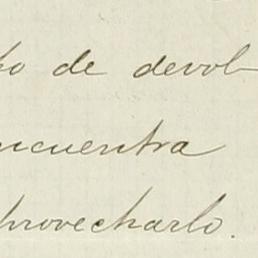 de devol
ncuentra
provecharlo.